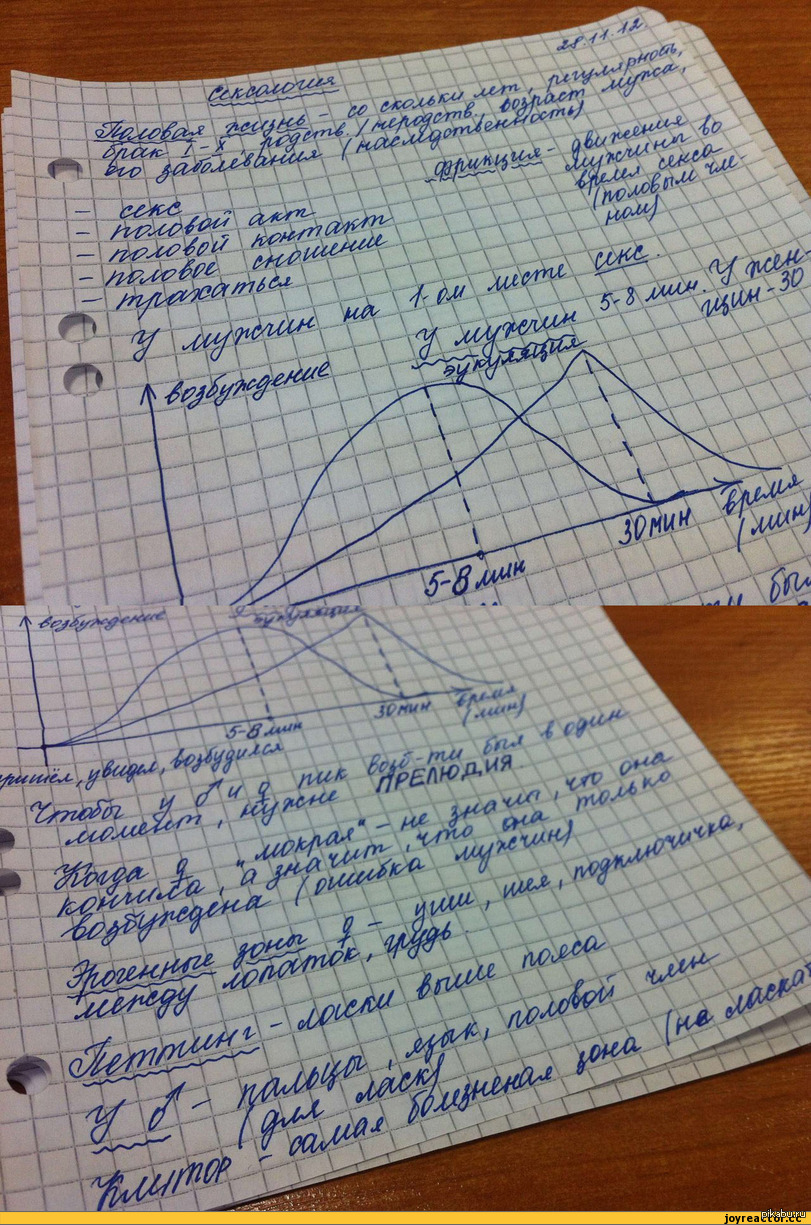 28.11.12.
Сексология
Половая жизнь - со скольки лет, регулярность,
брак 1-х, родств./неродств, возраст мужа,
его заболевания (наследственность)
Фрикция - движение
мужчины во
время секса
(половым чле-
ном)
- секс
- половой акт
- половой контакт
- половое сношение
- трахаться
У мужчин на 1-ом месте секс.
У мужчин 5-8 мин. У жен-
щин - 30
эукуляция
возбуждение
5-8 мин
30 мин
время
(мин)
возбуждение
эукуляция
5-8 мин
30 мин
время
(мин)
пришёл, увидел, возбудился
Чтобы у ♂ и ♀ пик возб-ти был в один
момент, нужне ПРЕЛЮДИЯ.
Когда ♀ "мокрая" - не значит, что она
кончила, а значит, что она только
возбуждена (ошибка мужчин)
Эрогенные зоны ♀ - уши, шея, подключичка,
между лопаток, грудь.
Петтинг - ласки выше пояса
У ♂ - пальцы, язык, половой член
(для ласк)
Клитор - самая болезненая зона (не ласкат
pikabu.ru
joyreactor.cc